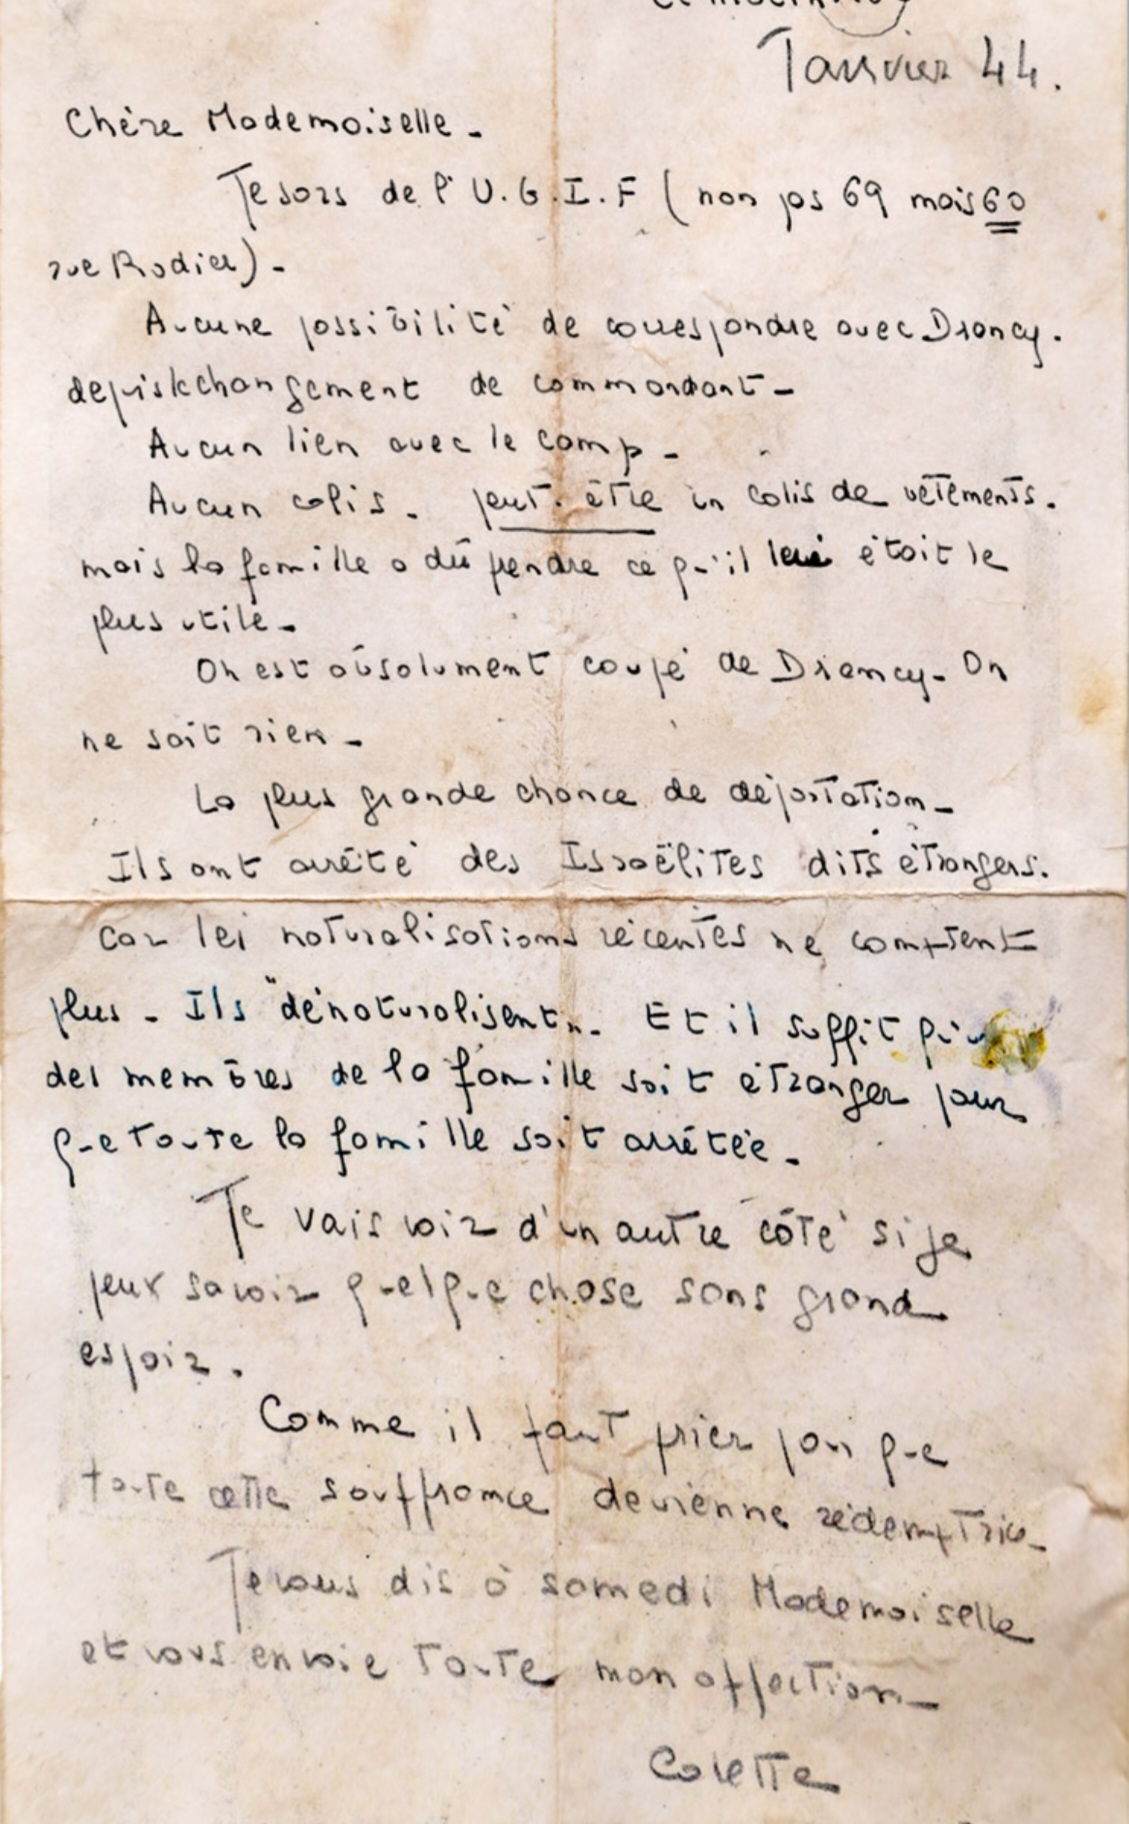 Janvier 44.
Chère Mademoiselle -
Je sors de l'U.G.I.F (non pas 69 mais 60
rue Rodier) -
Aucune possibilité de correspondre avec Drancy.
depuis le changement de commandant -
Aucun lien avec le camp -
Aucun colis. peut-être un colis de vêtements.
mais la famille a dû prendre ce qu'il lui était le
plus utile -
On est absolument coupé de Drancy - On
ne sait rien -
La plus grande chance de déportation -
Ils ont arrêté des Israëlites dits étrangers.
car les naturalisations récentes ne comptent
plus - Ils "dénaturalisent" - Et il suffit
des membres de la famille soit étranger pour
que toute la famille soit arrêtée -
Je vais voir d'un autre côté si je
peux savoir quelque chose sans grand
espoir.
Comme il faut prier pour que
toute cette souffrance devienne rédemptrice -
Je vous dis à samedi Mademoiselle
et vous envoie toute mon affection -
Colette